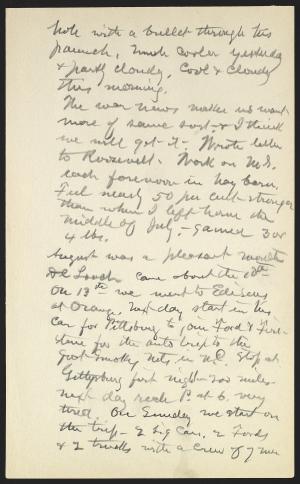 hole with a bullet through his
paunch, Much cooler yesterday
& partly cloudy, Cool & cloudy
this morning.
The war news makes us want
more of same sort - & I think
we will get it - Wrote letter
to Roosevelt - Work on M.S.
each forenoon in hay barn,
Feel nearly 50 per cent stronger
than when I left home the
middle of July, - Gained 3 or
4 lbs.
August was a pleasant month
De Loach came about the 10th
On 13th we went to Edisons
at Orange, next day start in his
car for Pittsburg to join Ford & Fire-
stone for the auto trip to the
Great Smoky Mts. in N.C. Stop at
Gettysburg first night - 200 miles -
next day reach P. at 6, very
tired. On Sunday we start on
the trip - 2 big cars, 2 Fords
& 2 trucks with a crew of 7 men